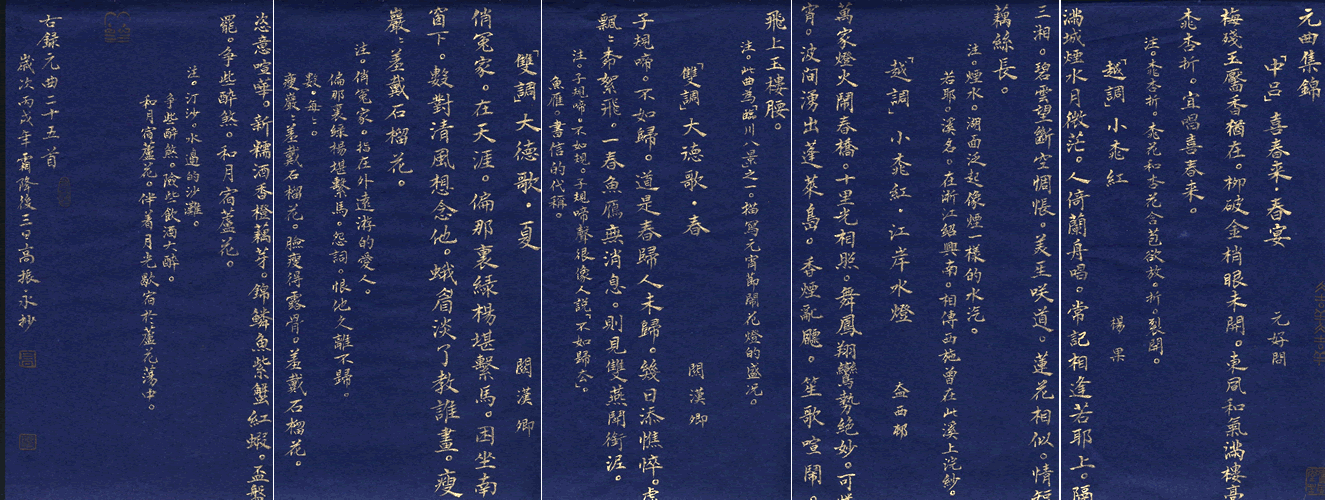 元曲集錦
「中呂」喜春來·春宴 元好問
梅殘玉靨香猶在。柳破金梢眼未開。東風和氣滿樓臺
桃杏折。宜唱喜春來。
注。桃杏折。桃花和杏花含苞欲放。折。裂開。
「越調」小桃紅 楊果
滿城煙水月微茫。人倚蘭舟唱。常記相逢若耶上。隔
三湘。碧雲望斷空惆悵。美主咲道。蓮花相似。情短
藕絲長。
注。煙水。湖面泛起像煙一樣的水汽。
若耶。溪名。在浙江紹興南。相傳西施曾在此溪上浣紗。
「越調」小桃紅·江岸水燈 盍西邨
萬家燈火鬧春橋。十里光相照。舞鳳翔鸞勢絕妙。可憐
宵。波間湧出蓬萊島。香煙亂飄。笙歌喧鬧。
飛上玉樓腰。
注。此曲為臨川八景之一描寫元宵節鬧花燈的盛況。
「雙調」大德歌·春 關漢卿
子規啼。不如歸。道是春歸人未歸。幾日添憔悴。虛
飄飄柳絮飛。一春魚雁無消息。則見雙燕鬥銜泥。
注。子規啼。不如規。子規啼聲很像人說「不如歸去」。
魚雁。書信的代稱。
「雙調」大德歌·夏 關漢卿
俏冤家。在天涯。偏那裏綠楊堪繫馬。困坐南
窗下。數對清風想念他。蛾眉淡了教誰畫。瘦
巖巖羞戴石榴花。
注。俏冤家。指在外遠游的愛人。
偏那裏綠楊堪繫馬。怨詞。恨他久離不歸。
數。每每。
瘦巖巖羞戴石榴花。臉瘦得露骨。羞戴石榴花。
恣意喧嘩。新糯酒香橙藕芽。錦鱗魚紫蟹紅蝦。盃盤
罷。爭些醉煞。和月宿蘆花。
注。汀沙。水邊的沙灘。
爭些醉煞。險些飲酒大醉。
和月宿蘆花。伴著月光歇宿於蘆花蕩中。
古錄元曲二十五首
歲次丙戌年霜降後三日高振永抄